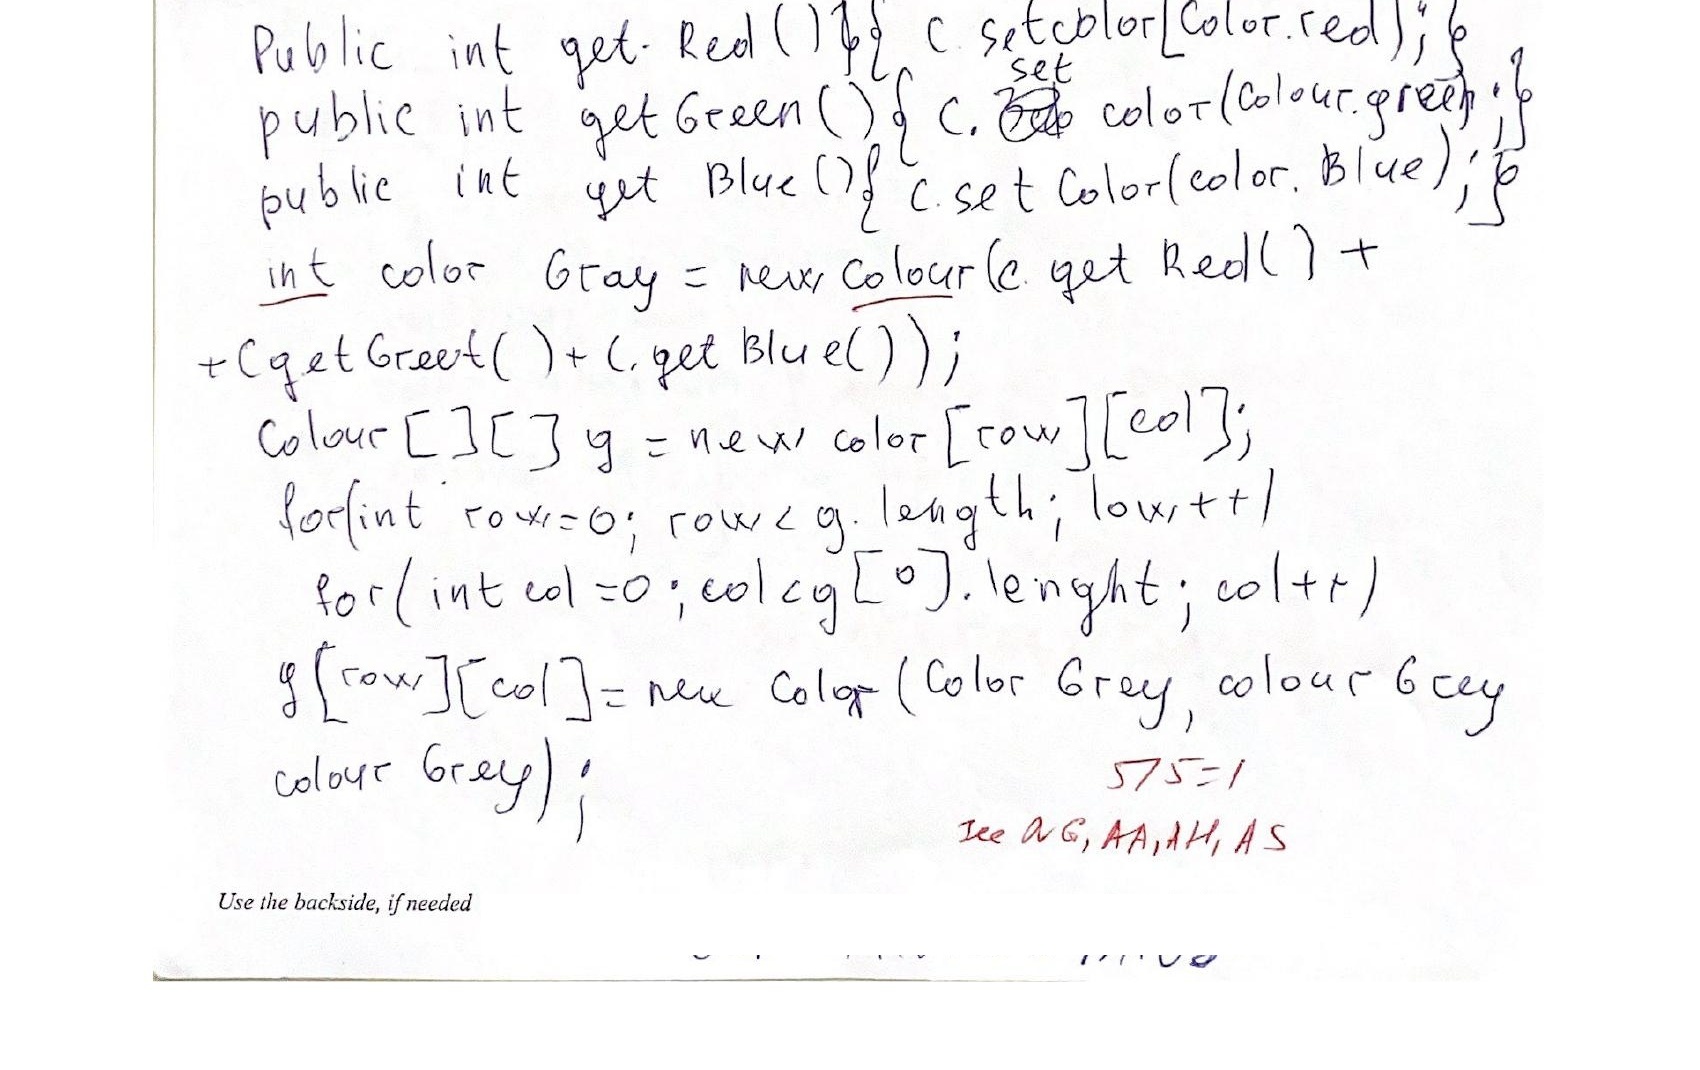 Public int get. Red (){ c. setcolor[Color.red);}
set
public int getGreen(){ c. color(Colour.green;}
public int get Blue(){ c.set Color(color. Blue);}
int color Gray = new Colour(c. get Red() +
+ C getGreet() + C. get Blue());
Colour [][] g = new color [row][col];
for(int row=0; row < g. length; low++)
for( int col =0; col<g[0]. lenght; col++)
g[row][col]= new Color (Color Grey, colour Grey
colour Grey);
575=1
See AG, AA, AH, AS
Use the backside, if needed